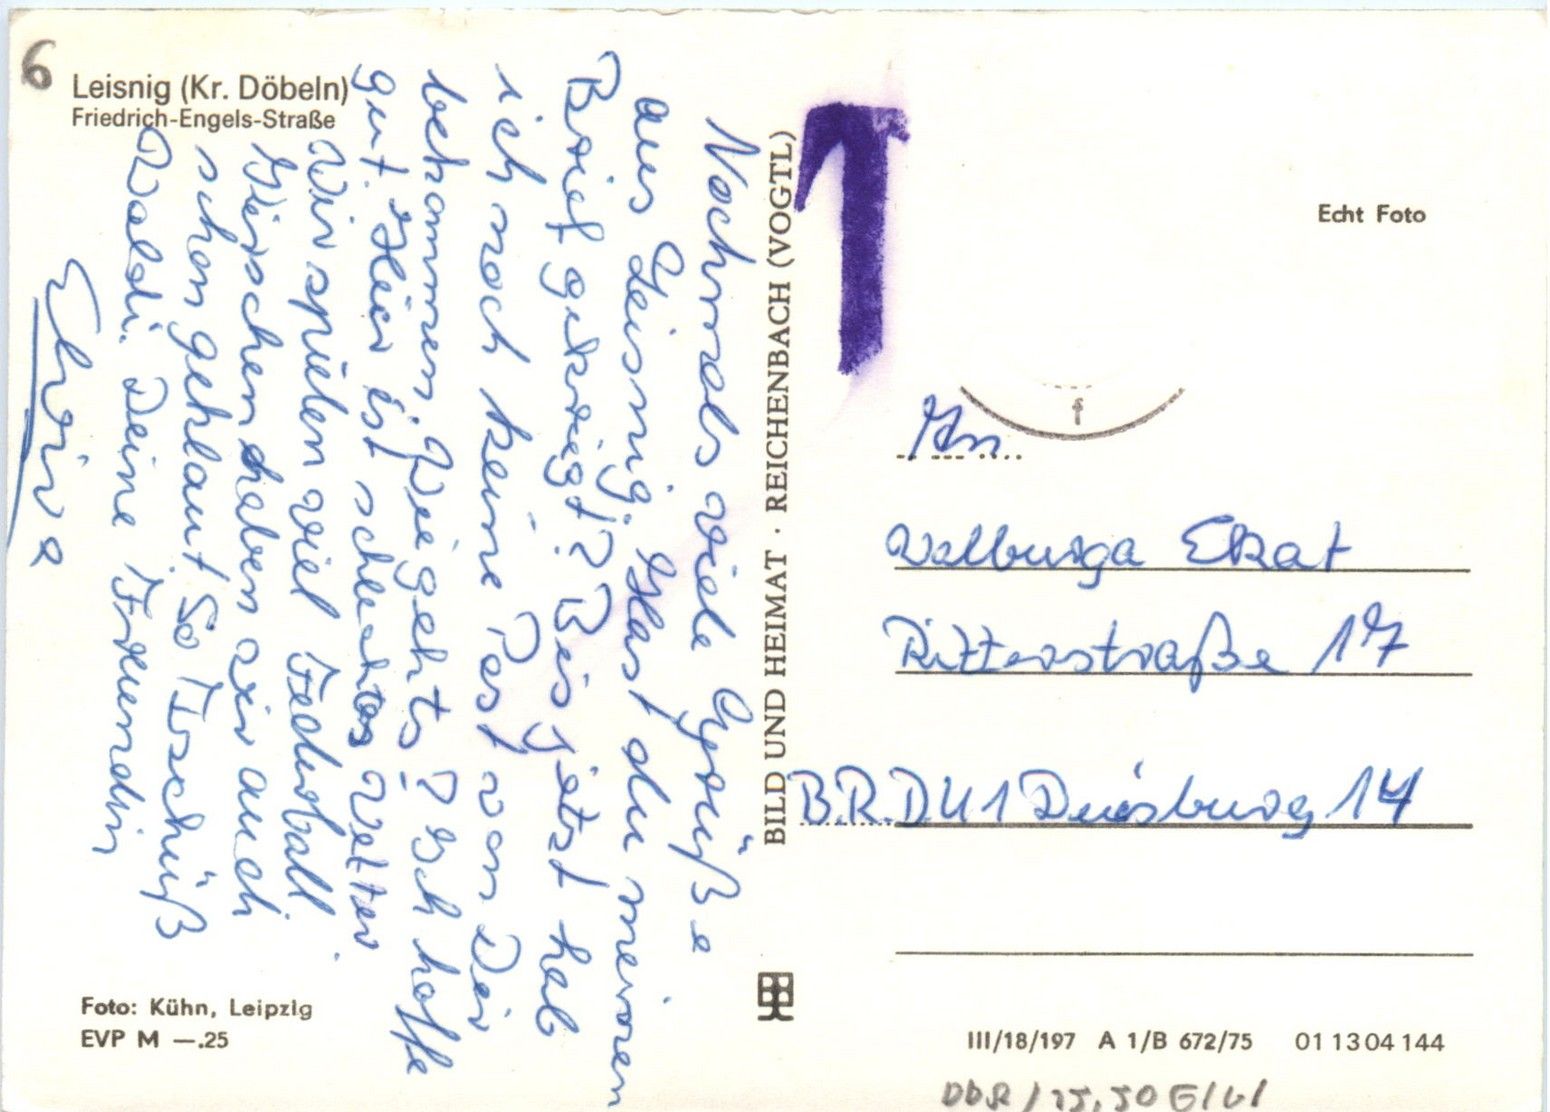 6
Leisnig (Kr. Döbeln)
Friedrich-Engels-Straße
Nochmals viele Grüße
aus Leisnig. Hast du meinen
Brief gekriegt? Bis jetzt hab
ich noch keine Post von Dir
bekommen. Wie gehts? Ich hoffe
gut. Hier ist schlechtes Wetter.
Wir spielen viel Federball
Kirschen haben wir auch
schon geklaut. So Tschüß
Waldi. Deine Freundin
Elvira
Foto: Kühn, Leipzig
EVP M —.25
BILD UND HEIMAT · REICHENBACH (VOGTL)
1
Echt Foto
f
An
Walburga Ekat
Ritterstraße 17
B.R.D. 41 Duisburg 14
III/18/197 A 1/B 672/75 01 13 04 144
DDR